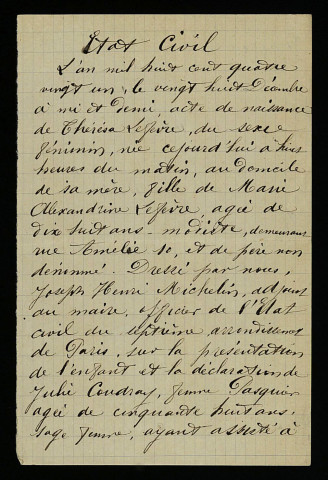 Etat Civil
L'an mil huit cent quatre
vingt un, le vingt huit Décembre
à mi et demi acte de naissance
de Thérésa Lefèvre, du sexe
féminin, née cejourd'hui à
heures du matin, au domicile
de sa mère, fille de Marie
Alexandrine Lefèvre, agée de
dix huit ans modiste, demeurant
rue Amélie 10, et de père non
dénommé. Dressé par nous,
Joseph Henri Michelin, adjoint
au maire, officier de l'Etat
civil du septième arrondissement
de Paris, sur la présentation
de l'enfant et la déclaration de
Julie Coudray, femme Pasquier
agée de cinquante huit ans.
sage femme, ayant assisté à